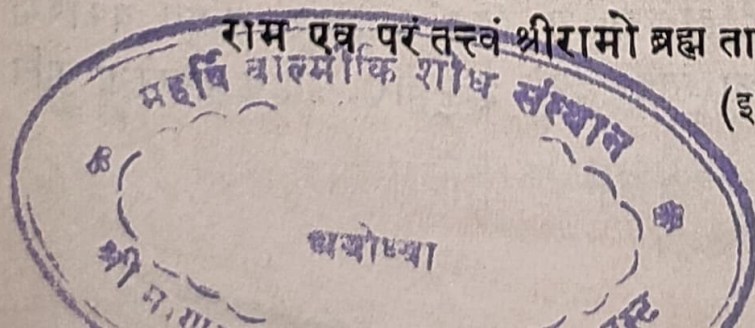 राम एव परं तत्त्वं श्रीरामो ब्रह्म ता
(इ
महर्षि वाल्मीकि शोध संस्थान
अयोध्या
श्री म.